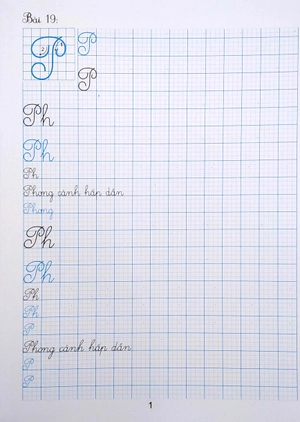 Bài 19:
P P
P
Ph
Ph
Ph
Phong cảnh hấp dẫn
Phong
Ph
Ph
Ph
Ph
P
Phong cảnh hấp dẫn
P
P
1